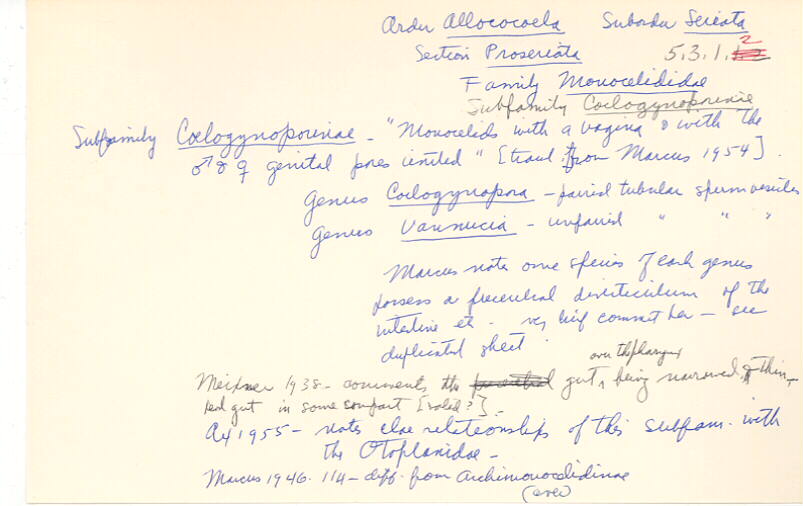 Order Allococoela Suborder Seriata
Section Proseriata 5.3.1.2
Family Monocelididae
Subfamily Coelogynoporinae
Subfamily Coelogynoporinae - "Monocelids with a vagina & with the
♂ & ♀ genital pores united" [transl. from Marcus 1954].
Genus Coelogynopora - paired tubular sperm vesicles
Genus Vannuccia - unpaired " " "
Marcus notes one species of each genus
possess a precentral diverticulum of the
intestine etc - very brief comment here - see
duplicated sheet.
over the pharynx
Meixner 1938 - comments the gut, being narrowed, & thin-
ned gut in some compart [solid?].
Ax 1955 - notes close relationships of this subfam. with
the Otoplanidae -
Marcus 1946. 114 - diff. from Archimonocelidinae
(over)